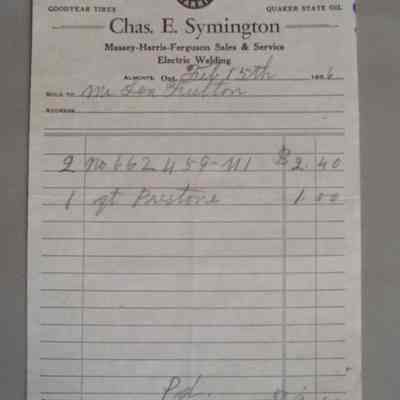 GOODYEAR TIRES QUAKER STATE OIL
Chas. E. Symington
Massey-Harris-Ferguson Sales & Service
Electric Welding
ALMONTE, Ont. Feb 15th 6
SOLD TO Mr Len Fulton
ADDRESS
2 no 662 459-M1 $2.40
1 qt Prestone 1.00
Pd.